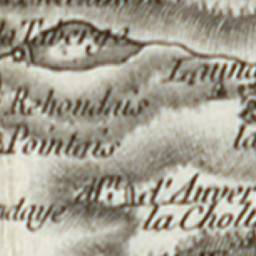 la Taberge
Rehondais
Pointais
la
Mn. d'Anver
ndaye
la Choll